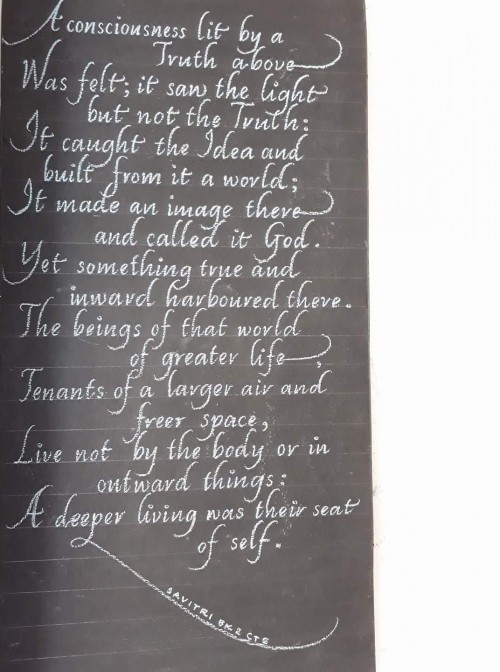 A consciousness lit by a
Truth above
Was felt; it saw the light
but not the Truth:
It caught the Idea and
built from it a world;
It made an image there
and called it God.
Yet something true and
inward harboured there.
The beings of that world
of greater life,
Tenants of a larger air and
freer space,
Live not by the body or in
outward things:
A deeper living was their seat
of self.
SAVITRI BK2 CT6